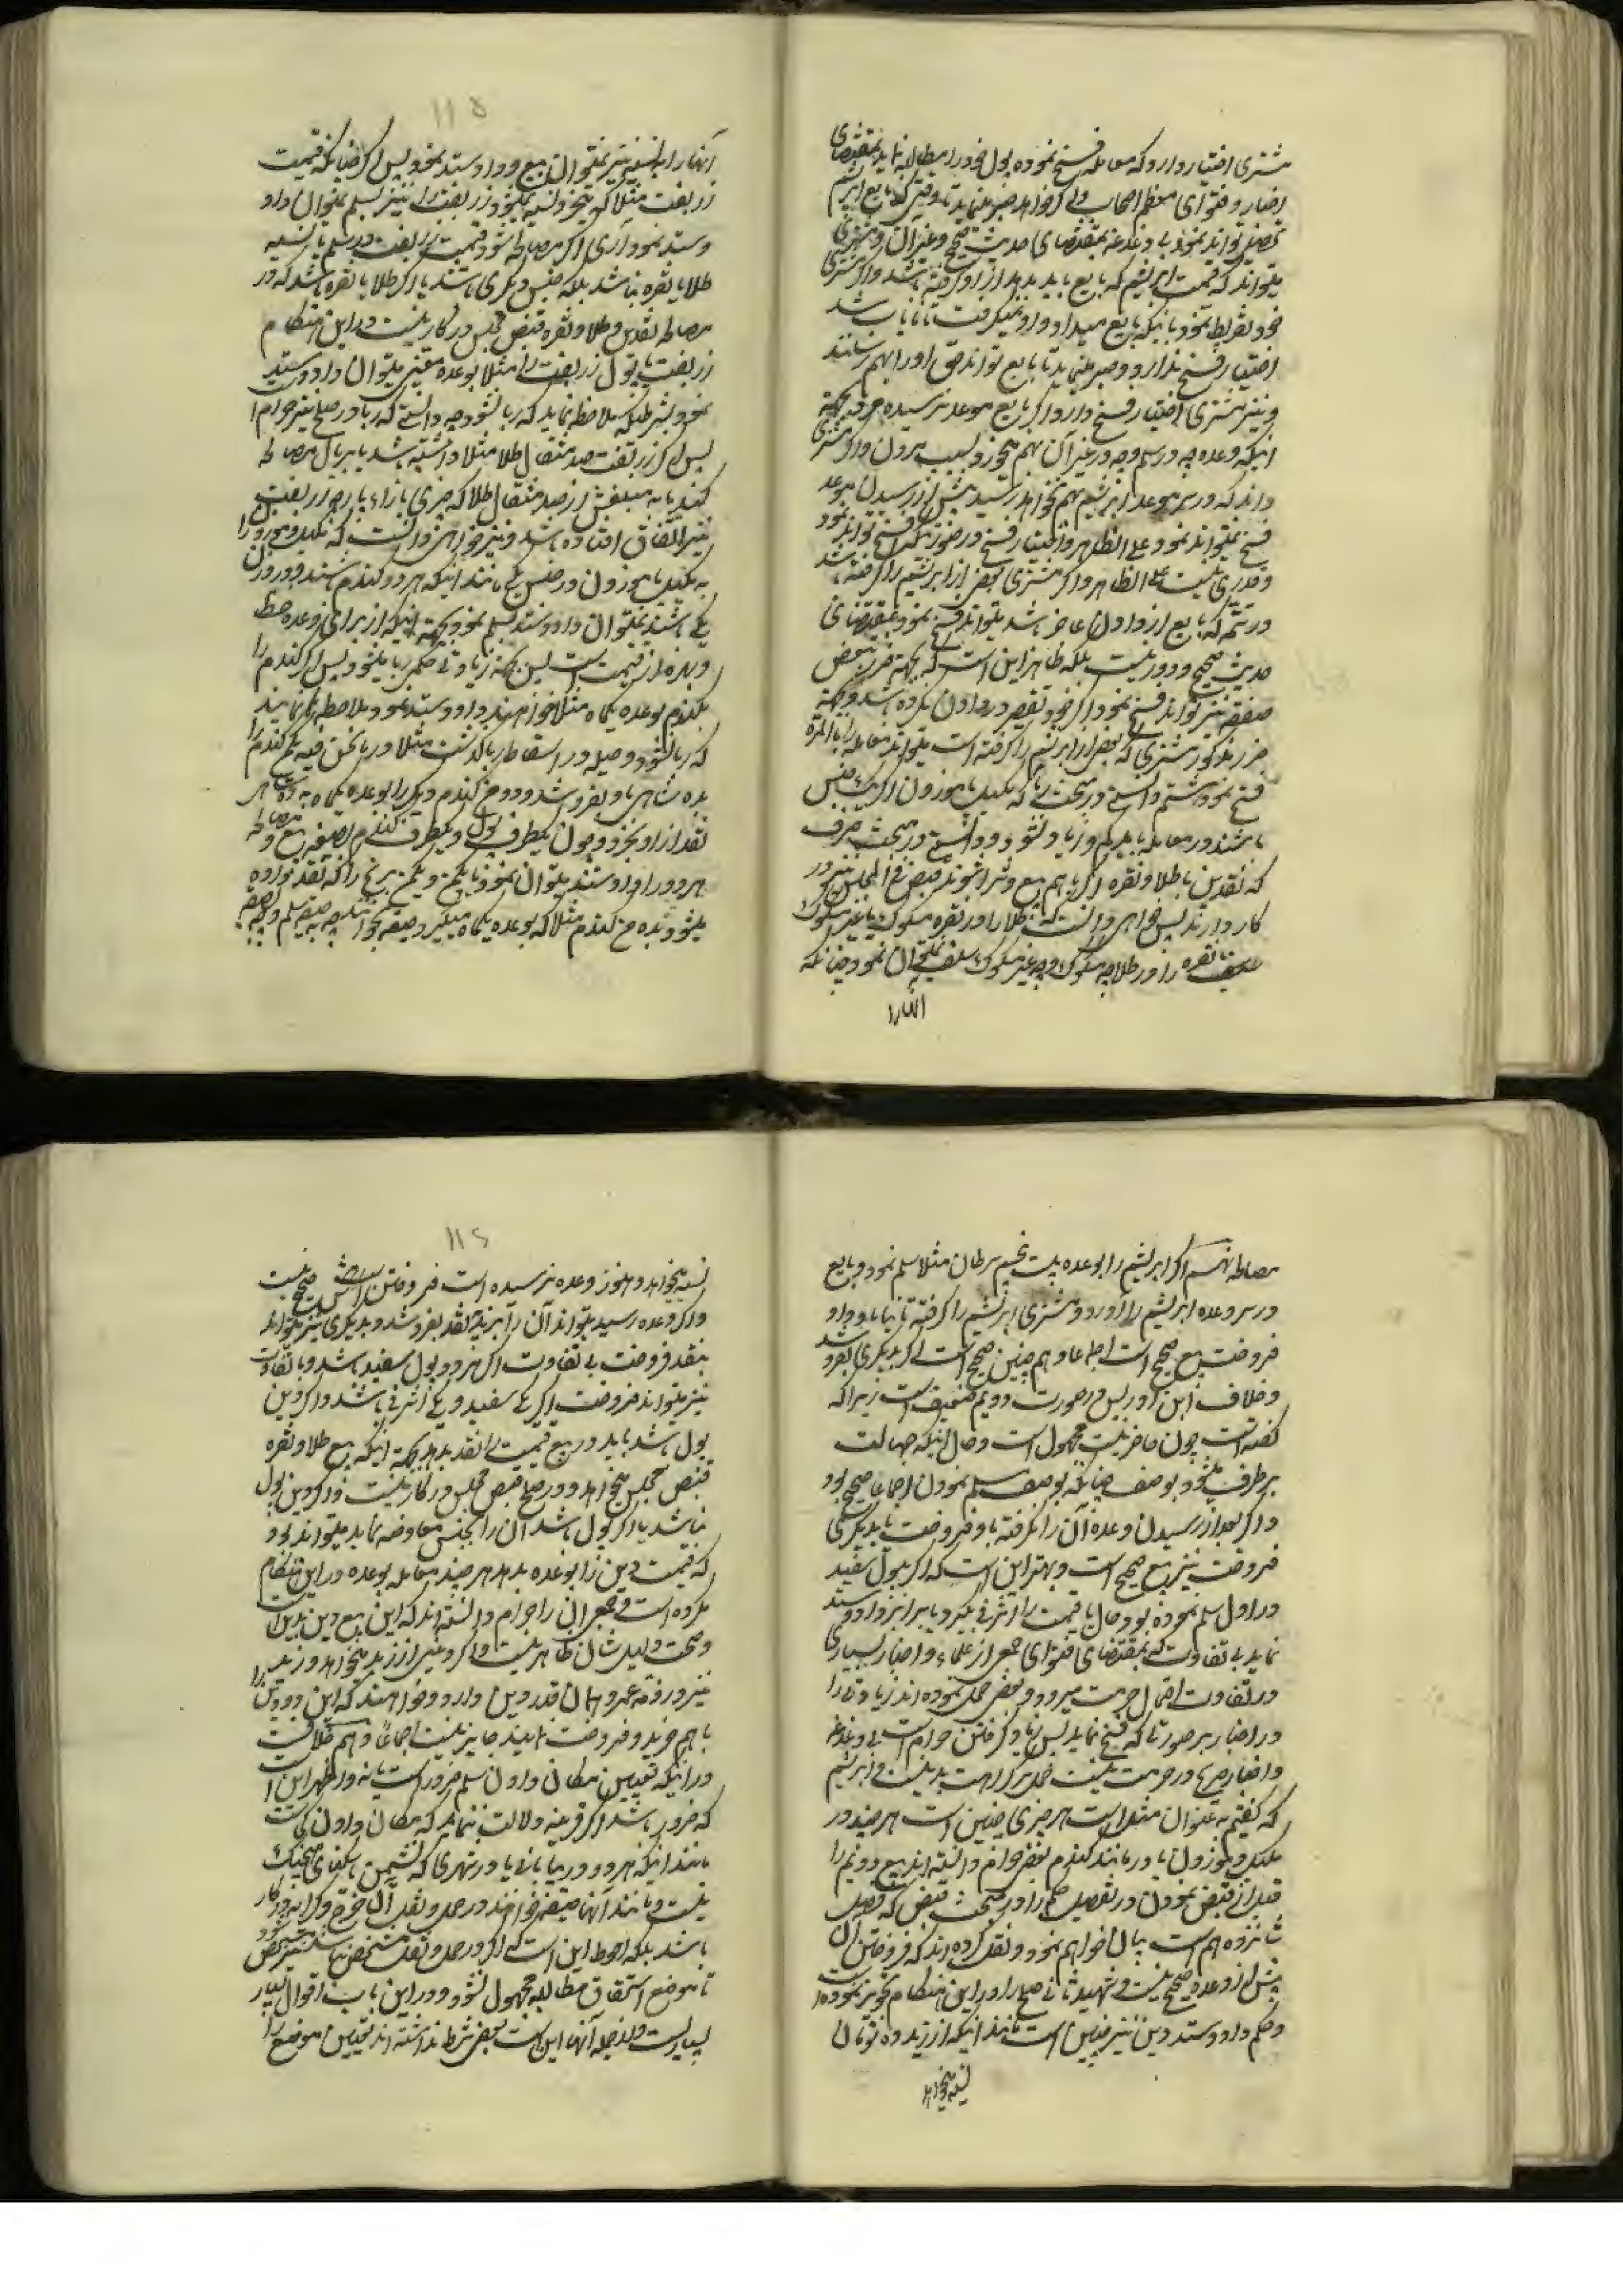 مشتری اختیار دارد که معامله فسخ نموده پول خود را مطالبه نماید بمقتضای
اخبار و فتوای معظم اصحاب و اگر خواهد صبر مینماید تا وقتی که بایع ابریشم
تحصیل تواند نمود بی دغدغه بمقتضای حدیث صحیح و غیر آن و مشتری
میتواند که قیمت ابریشم که بایع باید بدهد از او گرفته باشد و اگر مشتری
خود تفریط نمود باینکه بایع میداد و او نمیگرفت تا نایاب شد
اختیار فسخ ندارد و صبر مینماید تا بایع تواند حق او را بهم رساند
و نیز مشتری اختیار فسخ دارد اگر بایع موعد نرسیده
اینکه وعده چه در سلم و چه در غیر آن بهم میخورد بسبب مردن و اگر مشتری
داند که در سر موعد ابریشم بهم نخواهد رسید پیش از رسیدن موعد
فسخ نمیتواند نمود علی الظاهر و اختیار فسخ در صورتیکه فسخ تواند نمود
و فوری نیست علی الظاهر و اگر مشتری بعض از ابریشم را گرفته باشد
و در تتمه که بایع از دادن عاجز باشد میتواند فسخ نمود بمقتضای
حدیث صحیح و دور نیست بلکه ظاهر این است که بجهة ضرر تبعض
صفقه نیز تواند فسخ نمود اگر خود تقصیر در دادن نکرده باشد و بجهة
ضرر مذکور مشتری که بعض از ابریشم را گرفته است میتواند معامله را بالمرة
فسخ نمود هشتم دانستی در مبحث ربا که مکیل یا موزون اگر یک جنس
باشند در معامله باید کم و زیاد نشود و دانستی در مبحث صرف
که نقدین با طلا و نقره اگر با هم بیع و شرا شوند قبض فی المجلس نیز در
کار دارند پس خواهی دانست که طلا را در نقره مسکوک یا غیر مسکوک
نقره را در طلا چه مسکوک و چه غیر مسکوک سلف نمیتوان نمود چنانکه
آنها را
۱۱۵
آنها را به نسیه نیز نمیتوان بیع و داد و ستد نمود پس اگر چنانکه قیمت
زربفت مثلا که بنقد و نسیه میشود زربفت را نیز بسلم نمیتوان داد
و ستد نمود آری اگر مصالحه شود قیمت زربفت در سلم یا نسیه
طلا یا نقره نباشد بلکه جنس دیگری باشد یا اگر طلا یا نقره باشد که در
مصالحه نقدین و طلا و نقره قبض مجلس در کار نیست در این هنگام
زربفت یا پول زربفت را مثلا بوعده معین میتوان داد و ستد
نمود بشرطیکه ملاحظه نماید که ربا نشود چه دانستی که ربا در صلح نیز حرام است
پس اگر زربفت صد مثقال طلا مثلا داشته باشد یا بریال مصالحه
کنند یا به مبلغش از صد مثقال طلا که چیزی بازاء پارچه زربفت
نیز اتفاق افتاده باشد و نیز خواهی دانست که مکیل و موزون را
به مکیل یا موزون در جنس یکی مانند اینکه هر دو گندم باشند و در وزن
یکی باشند نمیتوان داد و ستد بسلم نمود بجهة اینکه از برای وعده حظ
و بهره از قیمت است پس بجهة زیادتی حکمی ربا میشود پس اگر گندم را
بگندم بوعده یکماه مثلا خواهند داد و ستد نمود ملاحظه نمایند
که ربا نشود و حیله در اسقاط ربا گذشت مثلا در ما نحن فیه یکمن گندم را
بده شاهی باو بفروشد و دو من گندم دیگر را بوعده یکماه به ده شاهی
نقد از او بخرد و چون یکطرف پول و یکطرف گندم بصیغه بیع و مصالحه
هر دو را داد و ستد میتوان نمود یا یکمن و یکمن برنج را که نقد بود داده
میشود بده من گندم مثلا که بوعده یکماه میگیرد صیغه بخواند چه بصیغه سلم و چه بصیغه
مصالحه نهم اگر ابریشم را بوعده بیست و پنجم سرطان مثلا سلم نمود و بایع
در سر وعده ابریشم را آورد و مشتری ابریشم را گرفته ثانیا باو داد
فروخت بیع صحیح است اجماعا و هم چنین صحیح است اگر بدیگری بفروشد
و خلاف ابن ادریس در صورت دویم ضعیف است زیرا که
گفته است چون حاضر نیست مجهول است و حال اینکه جهالت
برطرف میشود بوصف چنانکه بوصف سلم نمودن اجماعا صحیح بود
و اگر بعد از رسیدن وعده آن را نگرفته باو فروخت یا بدیگری
فروخت نیز بیع صحیح است و بهتر این است که اگر بپول سفید
در اول سلم نموده بود حال یا قیمت را اشرفی بگیرد یا برابر داد و ستد
نماید بی تفاوت که بمقتضای فتوای جمعی از علماء و اخبار بسیاری
در تفاوت احتمال حرمت میرود و بعض حمل نموده اند زیادتی را
در اخبار بر صورتی که فسخ نماید پس زیاد گرفتن حرام است بی دغدغه
و اخبار صریح در حرمت نیست حمل بر کراهت بد نیست و ابریشم
که گفتیم بعنوان مثل است هر چیزی چنین است هر چند در
مکیل و موزون یا در مانند گندم بعض حرام دانسته اند بیع دویم را
قبل از قبض نمودن و تفصیل حکم را در مبحث قبض که فصل
شانزدهم است بیان خواهم نمود و نقل کرده اند که فروختن آن
پیش از وعده صحیح نیست و شهید ثانی صلح را در این هنگام تجویز نموده است
و حکم داد و ستد دین نیز چنین است مانند اینکه از زید ده تومان
نسیه بخواهد
۱۱۶
نسیه بخواهد و هنوز وعده نرسیده است فروختن صحیح نیست
و اگر وعده رسید میتواند آن را بزید نقد بفروشد و بدیگری نیز میتواند
بنقد فروخت بی تفاوت اگر هر دو پول سفید باشد و با تفاوت
نیز میتواند فروخت اگر یکی سفید و یکی اشرفی باشند و اگر دین
پول باشد باید در بیع قیمت را نقد بدهد بجهة اینکه بیع طلا و نقره
قبض مجلس میخواهد و در صلح قبض مجلس در کار نیست و اگر دین پول
نباشد یا اگر پول باشد آن را بجنس معاوضه نماید میتواند بود
که قیمت دین را بوعده بدهد هر چند معامله بوعده در این هنگام
مکروه است و جمعی آن را حرام دانسته اند که این بیع دین بدین است
و صحت دلیل شان ظاهر نیست و اگر دینی از زید میخواهد و زید را
نیز در ذمه عمرو همان قدر دین دارد و خواهند که این دو دین را
با هم خرید و فروخت نمایند جایز نیست اجماعا و هم خلافست
در اینکه تعیین مکان دادن سلم ضرور است یا نه و اظهر این است
که ضرور باشد اگر قرینه دلالت ننماید که مکان دادن کی است
مانند اینکه هر دو در بیابانی یا در شهری که نشیمن یکی هیچیک
نیست و مانند آنها صیغه خواندند و در حمل و نقل آن خرج و کرایه در کار
باشد بلکه احوط این است که اگر در حمل و نقل مشخص نباشد نیز مشخص شود
تا موضع استحقاق مطالبه مجهول نشود و در این باب اقوال بسیار
بسیار است و از جمله آنها این است بعض شرط ندانسته اند تعیین موضع را